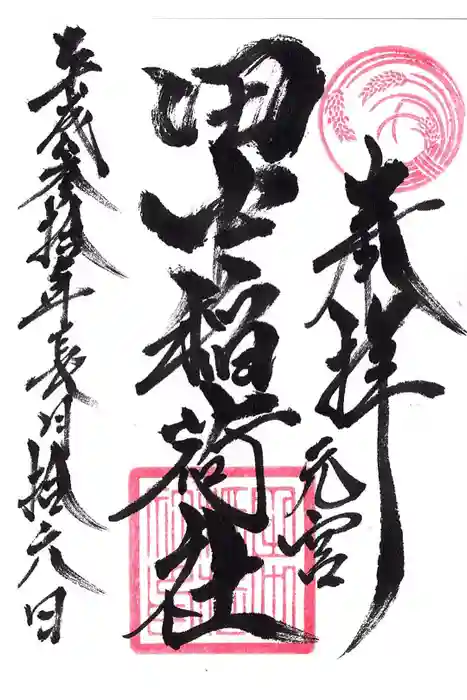 奉拝
元宮
田中稲荷社
平成参拾年長月拾六日